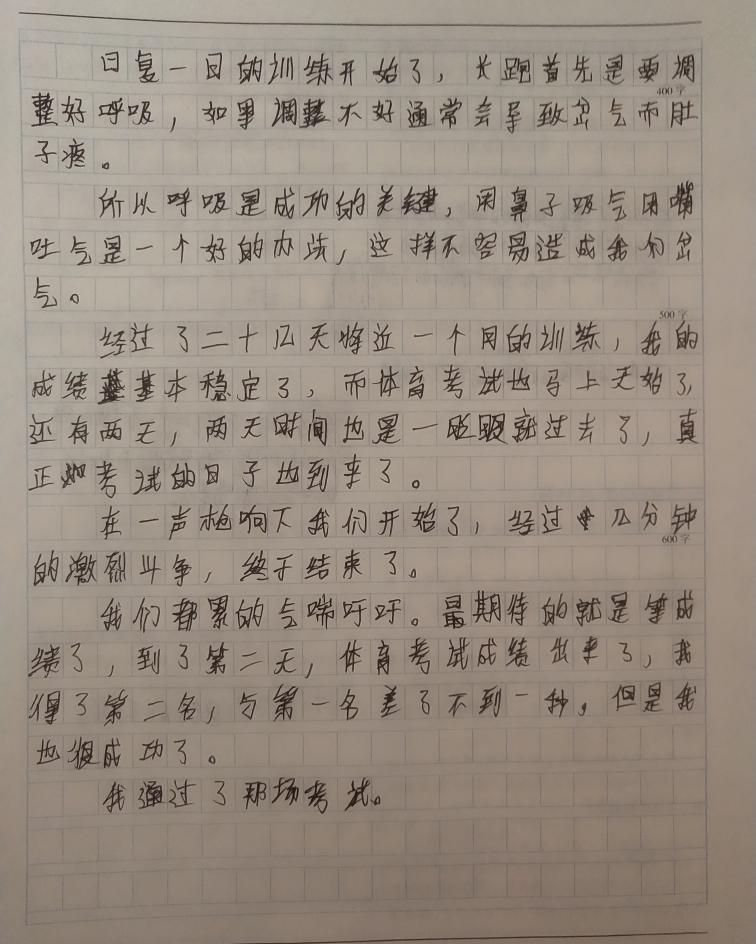 日复一日的训练开始了，长跑首先是要调
400字
整好呼吸，如果调整不好通常会导致岔气而肚
子疼。
所以呼吸是成功的关键，用鼻子吸气用嘴
吐气是一个好的办法，这样不容易造成我们岔
气。
500字
经过了二十几天将近一个月的训练，我的
成绩基本稳定了，而体育考试也马上开始了，
还有两天，两天时间也是一眨眼就过去了，真
正考试的日子也到来了。
在一声枪响下我们开始了，经过几分钟
600字
的激烈斗争，终于结束了。
我们都累的气喘吁吁。最期待的就是等成
绩了，到了第二天，体育考试成绩出来了，我
得了第二名，与第一名差了不到一秒。但是我
也很成功了。
我通过了那场考试。